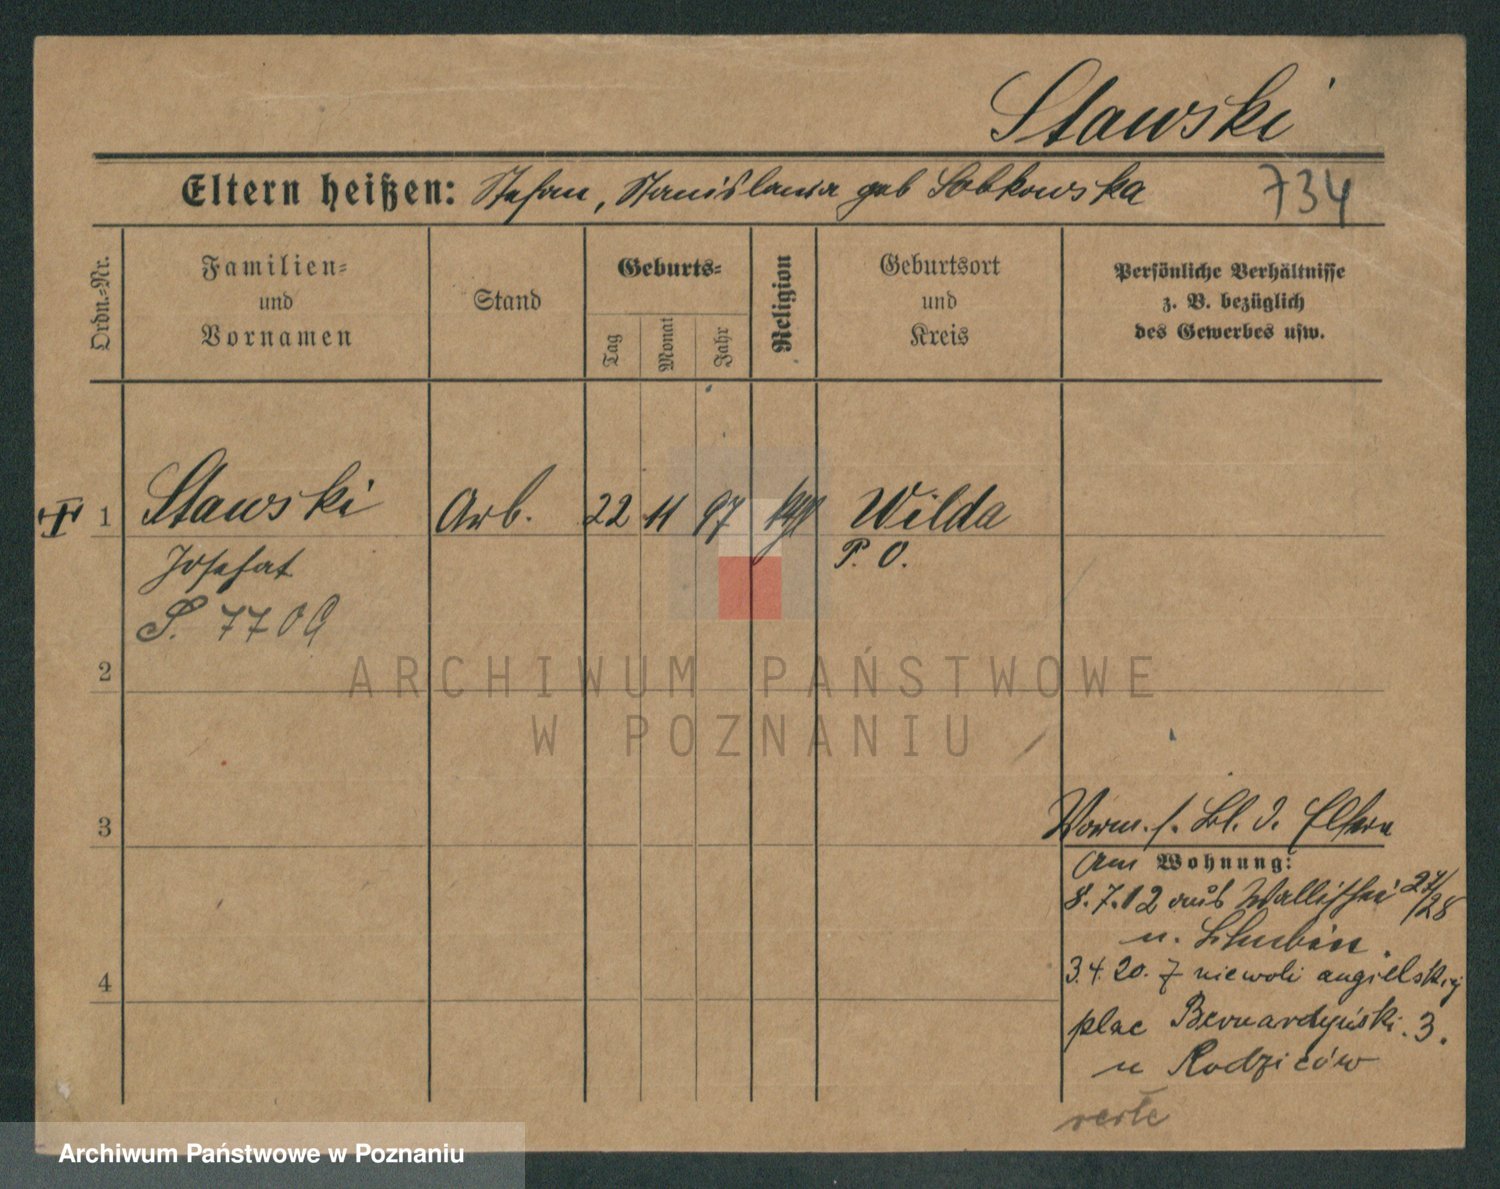 Stawski
Eltern heißen: Stefan, Stanislawa geb Sobkowska 734
Ordn.-Nr.
Familien- und Vornamen
Stand
Geburts-
Tag
Monat
Jahr
Religion
Geburtsort und Kreis
Persönliche Verhältnisse
z. B. bezüglich
des Gewerbes usw.
1 Stawski Arb. 22 11 97 kath Wilda
Josefat P. O.
S. 7709
2
3
4
Vorm. s. Bl. d. Eltern
Am Wohnung:
8.7.12 aus Wallischei 27/28
n. Schubin.
3.4.20. z niewoli angielskiej
plac Bernardyński. 3.
u Rodziców
verte
ARCHIWUM PAŃSTWOWE
W POZNANIU
Archiwum Państwowe w Poznaniu